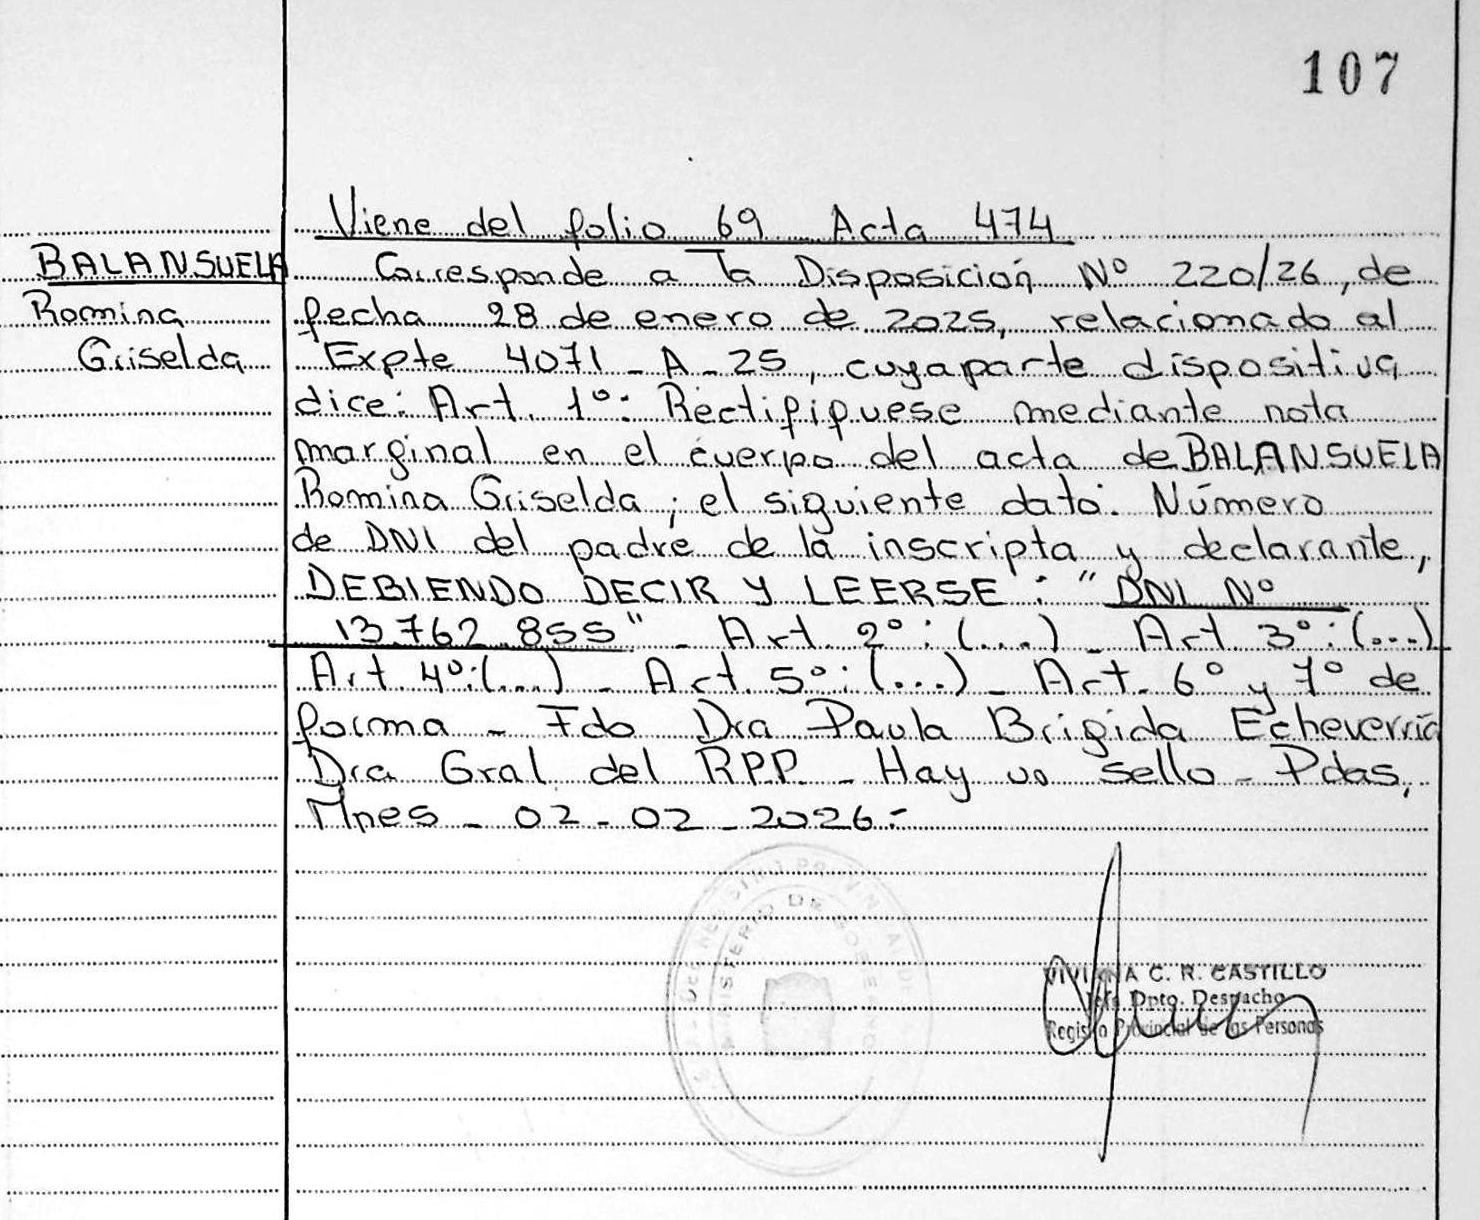 107
Viene del folio 69 Acta 474
BALANSUELA
Romina
Griselda
Corresponde a la Disposición Nº 220/26, de
fecha 28 de enero de 2025, relacionado al
Expte 4071 - A - 25, cuya parte dispositiva
dice: Art. 1º: Rectififquese mediante nota
marginal en el cuerpo del acta de BALANSUELA
Romina Griselda; el siguiente dato: Número
de DNI del padre de la inscripta y declarante,
DEBIENDO DECIR Y LEERSE: "DNI Nº
13.762.855" - Art. 2º: (...) - Art. 3º: (...)
Art. 4º: (...) - Art. 5º: (...) - Art. 6º y 7º de
forma - Fdo Dra Paula Brigida Echeverría
Dra Gral del RPP - Hay un sello - Pdas,
Mnes - 02 - 02 - 2026.-
MINISTERIO DE GOBIERNO
VIVIANA C. R. CASTILLO
Jefa Dpto. Despacho
Registro Provincial de las Personas